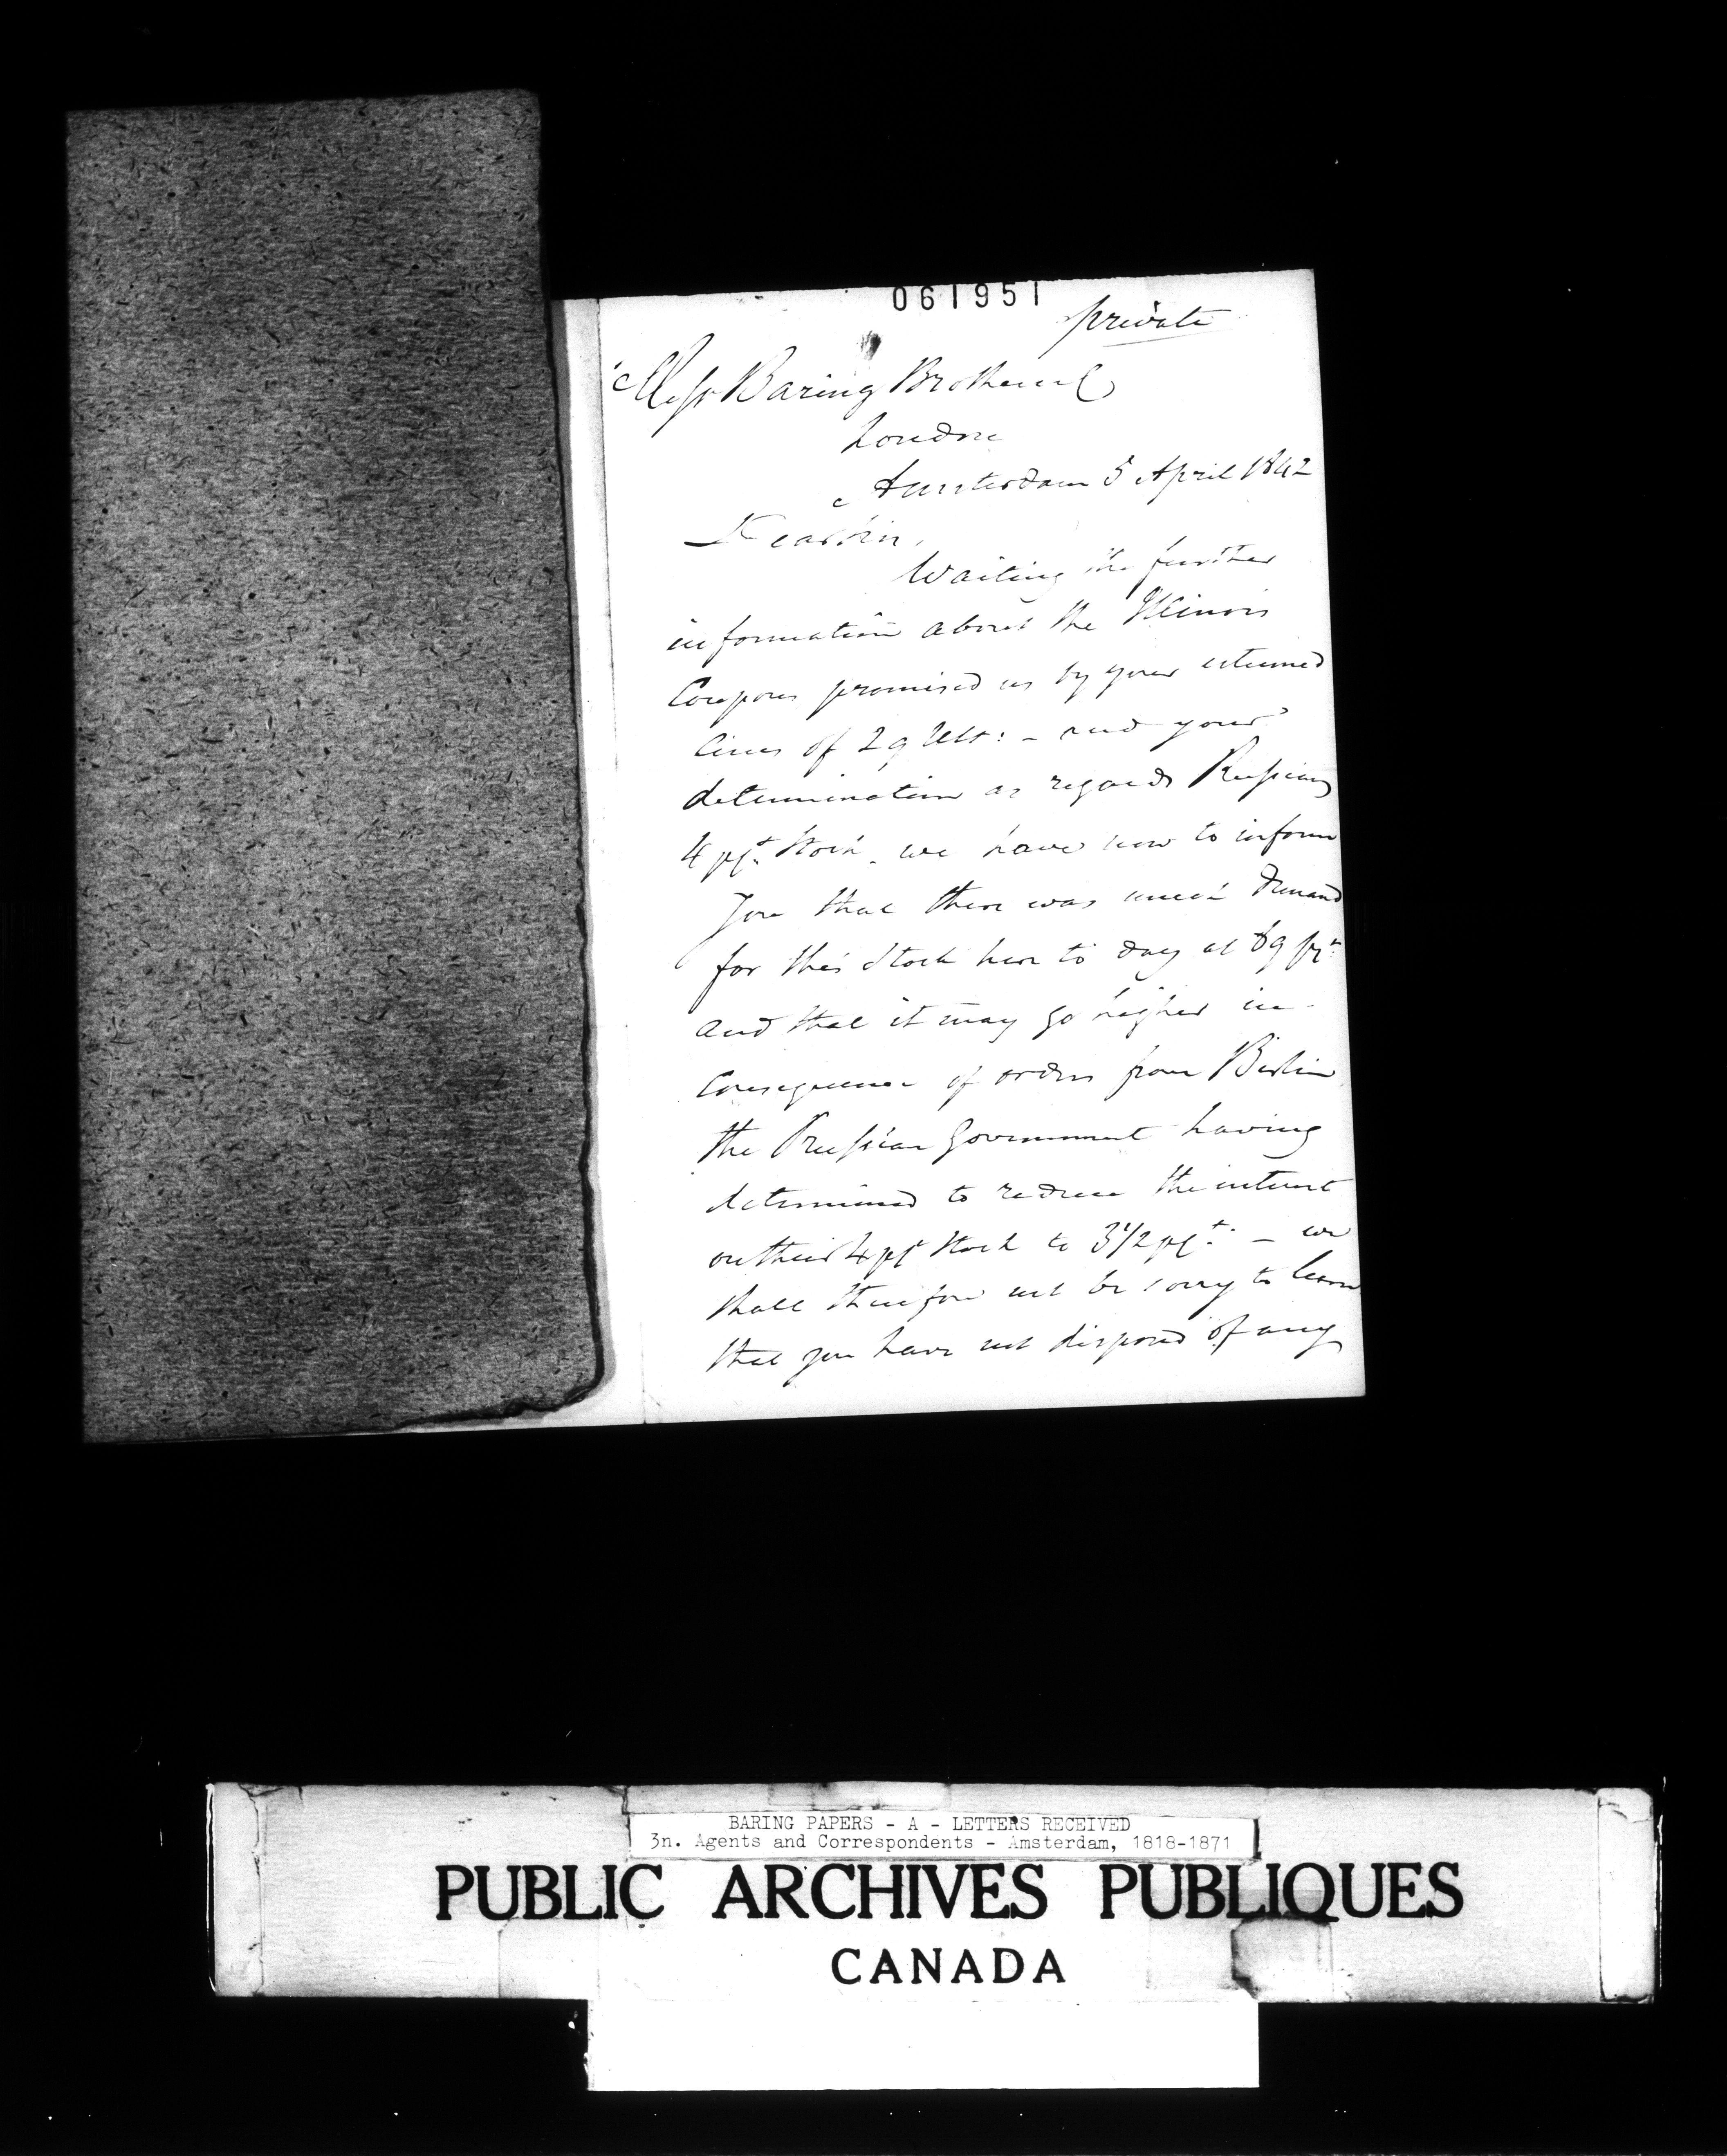 061951
private
Messrs Baring Brothers & Co
London
Amsterdam 5 April 1842
Dear Sirs,
Waiting the further
information about the Illinois
Coupons promised us by your esteemed
lines of 29 Ult: - and your
determination as regards Russian
4 pct. Stock. we have now to inform
You that there was much demand
for this Stock here to day at 89 pct.
and that it may go higher in
Consequence of orders from Berlin
the Prussian Government having
determined to reduce the interest
on their 4 pct Stock to 3 1/2 pct. - we
shall therefore not be sorry to learn
that you have not disposed of any
BARING PAPERS - A - LETTERS RECEIVED
3n. Agents and Correspondents - Amsterdam, 1818-1871
PUBLIC ARCHIVES PUBLIQUES
CANADA